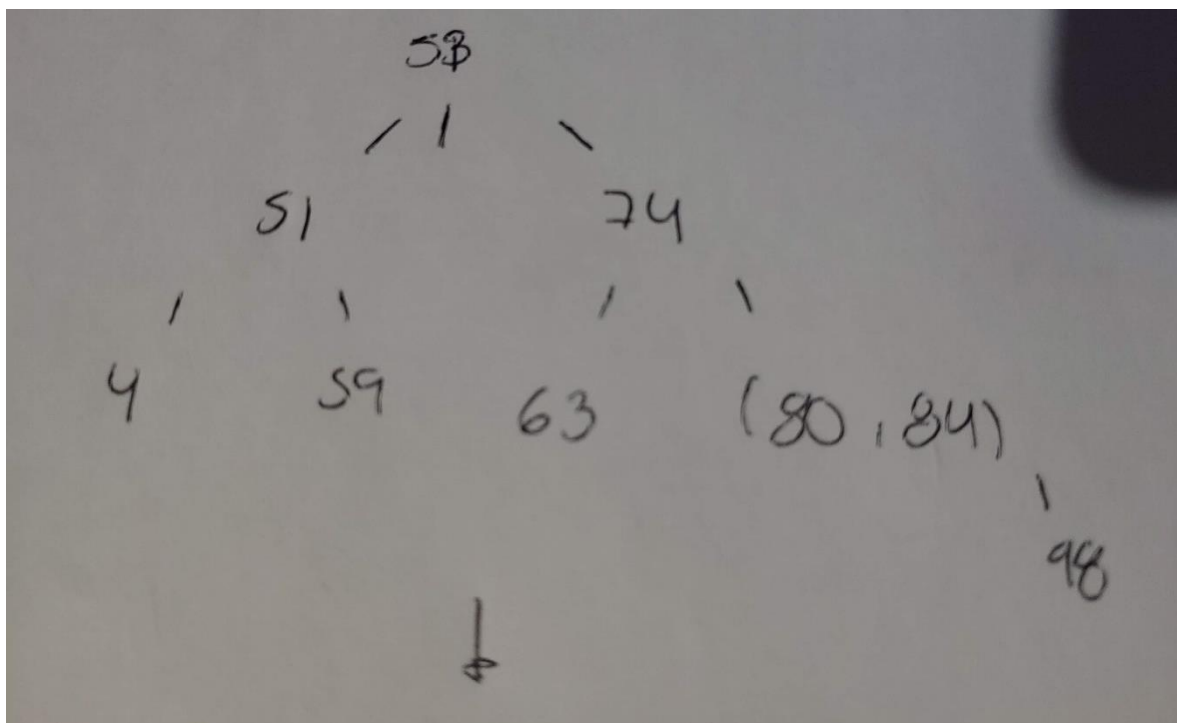 51 74
4 59 63 (80, 84)
98